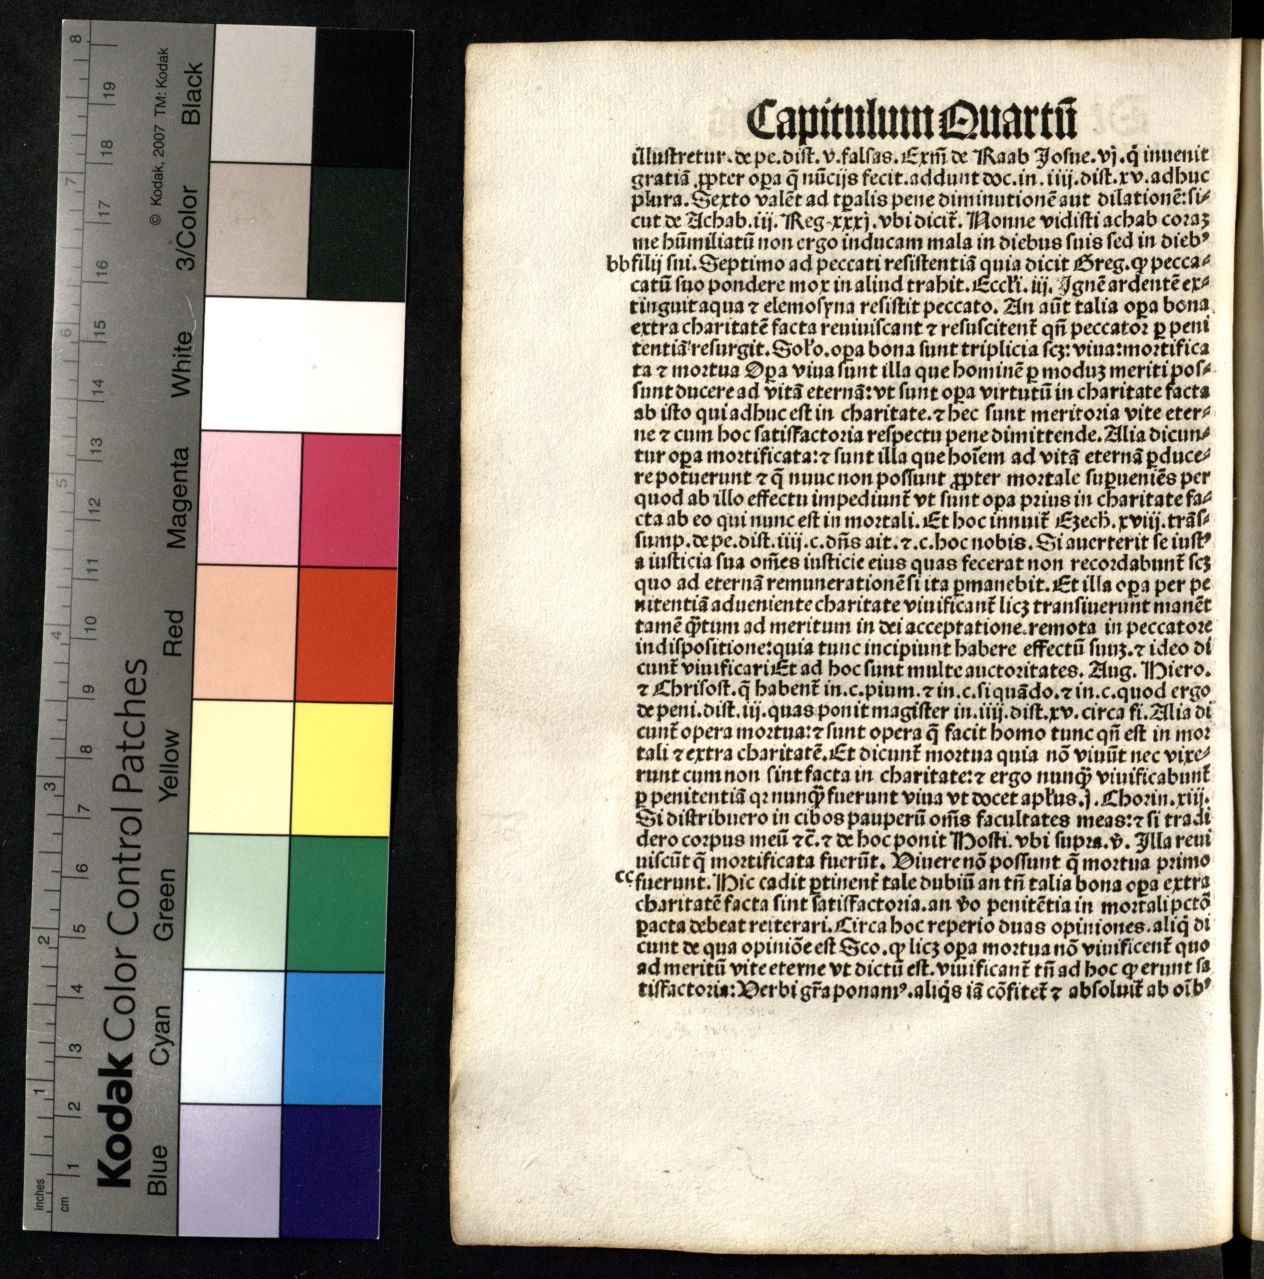 Capitulum Quartū
illustretur.de pe.dist.v.falsas.Exm̄ de Raab Josue.vj.q̄ inuenit
gratiā ꝓpter oꝑa q̄ nūcijs fecit.addunt doc.in.iiij.dist.xv.adhuc
plura.Sexto valēt ad tꝑalis pene diminutionē aut dilationē:si-
cut de Achab.iij.Reg.xxxj.vbi dicit̄.Nonne vidisti achab coraꝫ
me hūmiliatū non ergo inducam mala in diebus suis sed in diebꝰ
bb filij sui.Septimo ad peccati resistentiā quia dicit Greg.ꝙ pecca⸗
catū suo pondere mox in aliud trahit.Eccl̄i.iij.Ignē ardentē ex⸗
tinguit aqua ⁊ elemosyna resistit peccato. An aūt talia oꝑa bona
extra charitatē facta reuiuiscant ⁊ resuscitent̄ qn̄ peccator ꝑ peni
tentiā resurgit.Sol̄o.oꝑa bona sunt triplicia scꝫ:viua:mortifica
ta ⁊ mortua Oꝑa viua sunt illa que hominē ꝑ moduꝫ meriti pos⸗
sunt ducere ad vitā eternā:vt sunt oꝑa virtutū in charitate facta
ab isto qui adhuc est in charitate.⁊ hec sunt meritoria vite eter⸗
ne ⁊ cum hoc satisfactoria respectu pene dimittende.Alia dicun⸗
tur oꝑa mortificata:⁊ sunt illa que hoīem ad vitā eternā ꝑduce⸗
re potuerunt ⁊ q̄ nuuc non possunt ꝓpter mortale suꝑueniēs per
quod ab illo effectu impediunt̄ vt sunt oꝑa prius in charitate fa⸗
cta ab eo qui nunc est in mortali.Et hoc innuit̄ Ezech̄.xviij.trās⸗
sump.de pe.dist.iiij.c.dn̄s ait.⁊.c.hoc nobis.Si auerterit se iustꝰ
a iusticia sua om̄es iusticie eius quas fecerat non recordabunt̄ scꝫ
quo ad eternā remunerationē si ita ꝑmanebit.Et illa oꝑa per pe
nitentiā adueniente charitate viuificant̄ licꝫ transiuerunt manēt
tamē qͣ̄tum ad meritum in dei acceptatione.remota in peccatore
indispositione:quia tunc incipiunt habere effectū suuꝫ.⁊ ideo di
cunt̄ viuificari Et ad hoc sunt multe auctoritates. Aug. Hiero.
⁊ Chrisost.q̄ habent̄ in.c.pium.⁊ in.c.si quādo.⁊ in.c.quod ergo
de peni.dist.iij.quas ponit magister in.iiij.dist.xv.circa fi.Alia di
cunt̄ opera mortua:⁊ sunt opera q̄ facit homo tunc qn̄ est in mor
tali ⁊ extra charitatē.Et dicunt̄ mortua quia nō viuūt nec vixe⸗
runt cum non sint facta in charitate:⁊ ergo nunqͣ̄ viuificabunt̄
ꝑ penitentiā qꝛ nunqͣ̄ fuerunt viua vt docet apl̄us.j.Chorin.xiij.
Si distribuero in cibos pauperū om̄s facultates meas:⁊ si tradi
dero corpus meū ⁊c̄.⁊ de hoc ponit Hosti.vbi supra.v̄. Illa reui
uiscūt q̄ mortificata fuerūt. Viuere nō possunt q̄ mortua primo
cc fuerunt.Hic cadit ꝑtinent̄ tale dubiū an tn̄ talia bona oꝑa extra
charitatē facta sint satisfactoria.an v̄o penitētia in mortali pctō
ꝑacta debeat reiterari.Circa hoc reperio duas opiniones.aliq̄ di
cunt de qua opiniōe est Sco.ꝙ licꝫ oꝑa mortua nō viuificent̄ quo
ad meritū vite eterne vt dictū est.viuificant̄ tn̄ ad hoc ꝙ erunt sa
tisfactoria:Verbi gr̄a ponamꝰ.aliq̄s iā cōfitet̄ ⁊ absoluit̄ ab oībꝰ
Kodak Color Control Patches
© Kodak, 2007 TM: Kodak
Blue Cyan Green Yellow Red Magenta White 3/Color Black
inches 1 2 3 4 5 6 7 8
cm 1 2 3 4 5 6 7 8 9 10 11 12 13 14 15 16 17 18 19